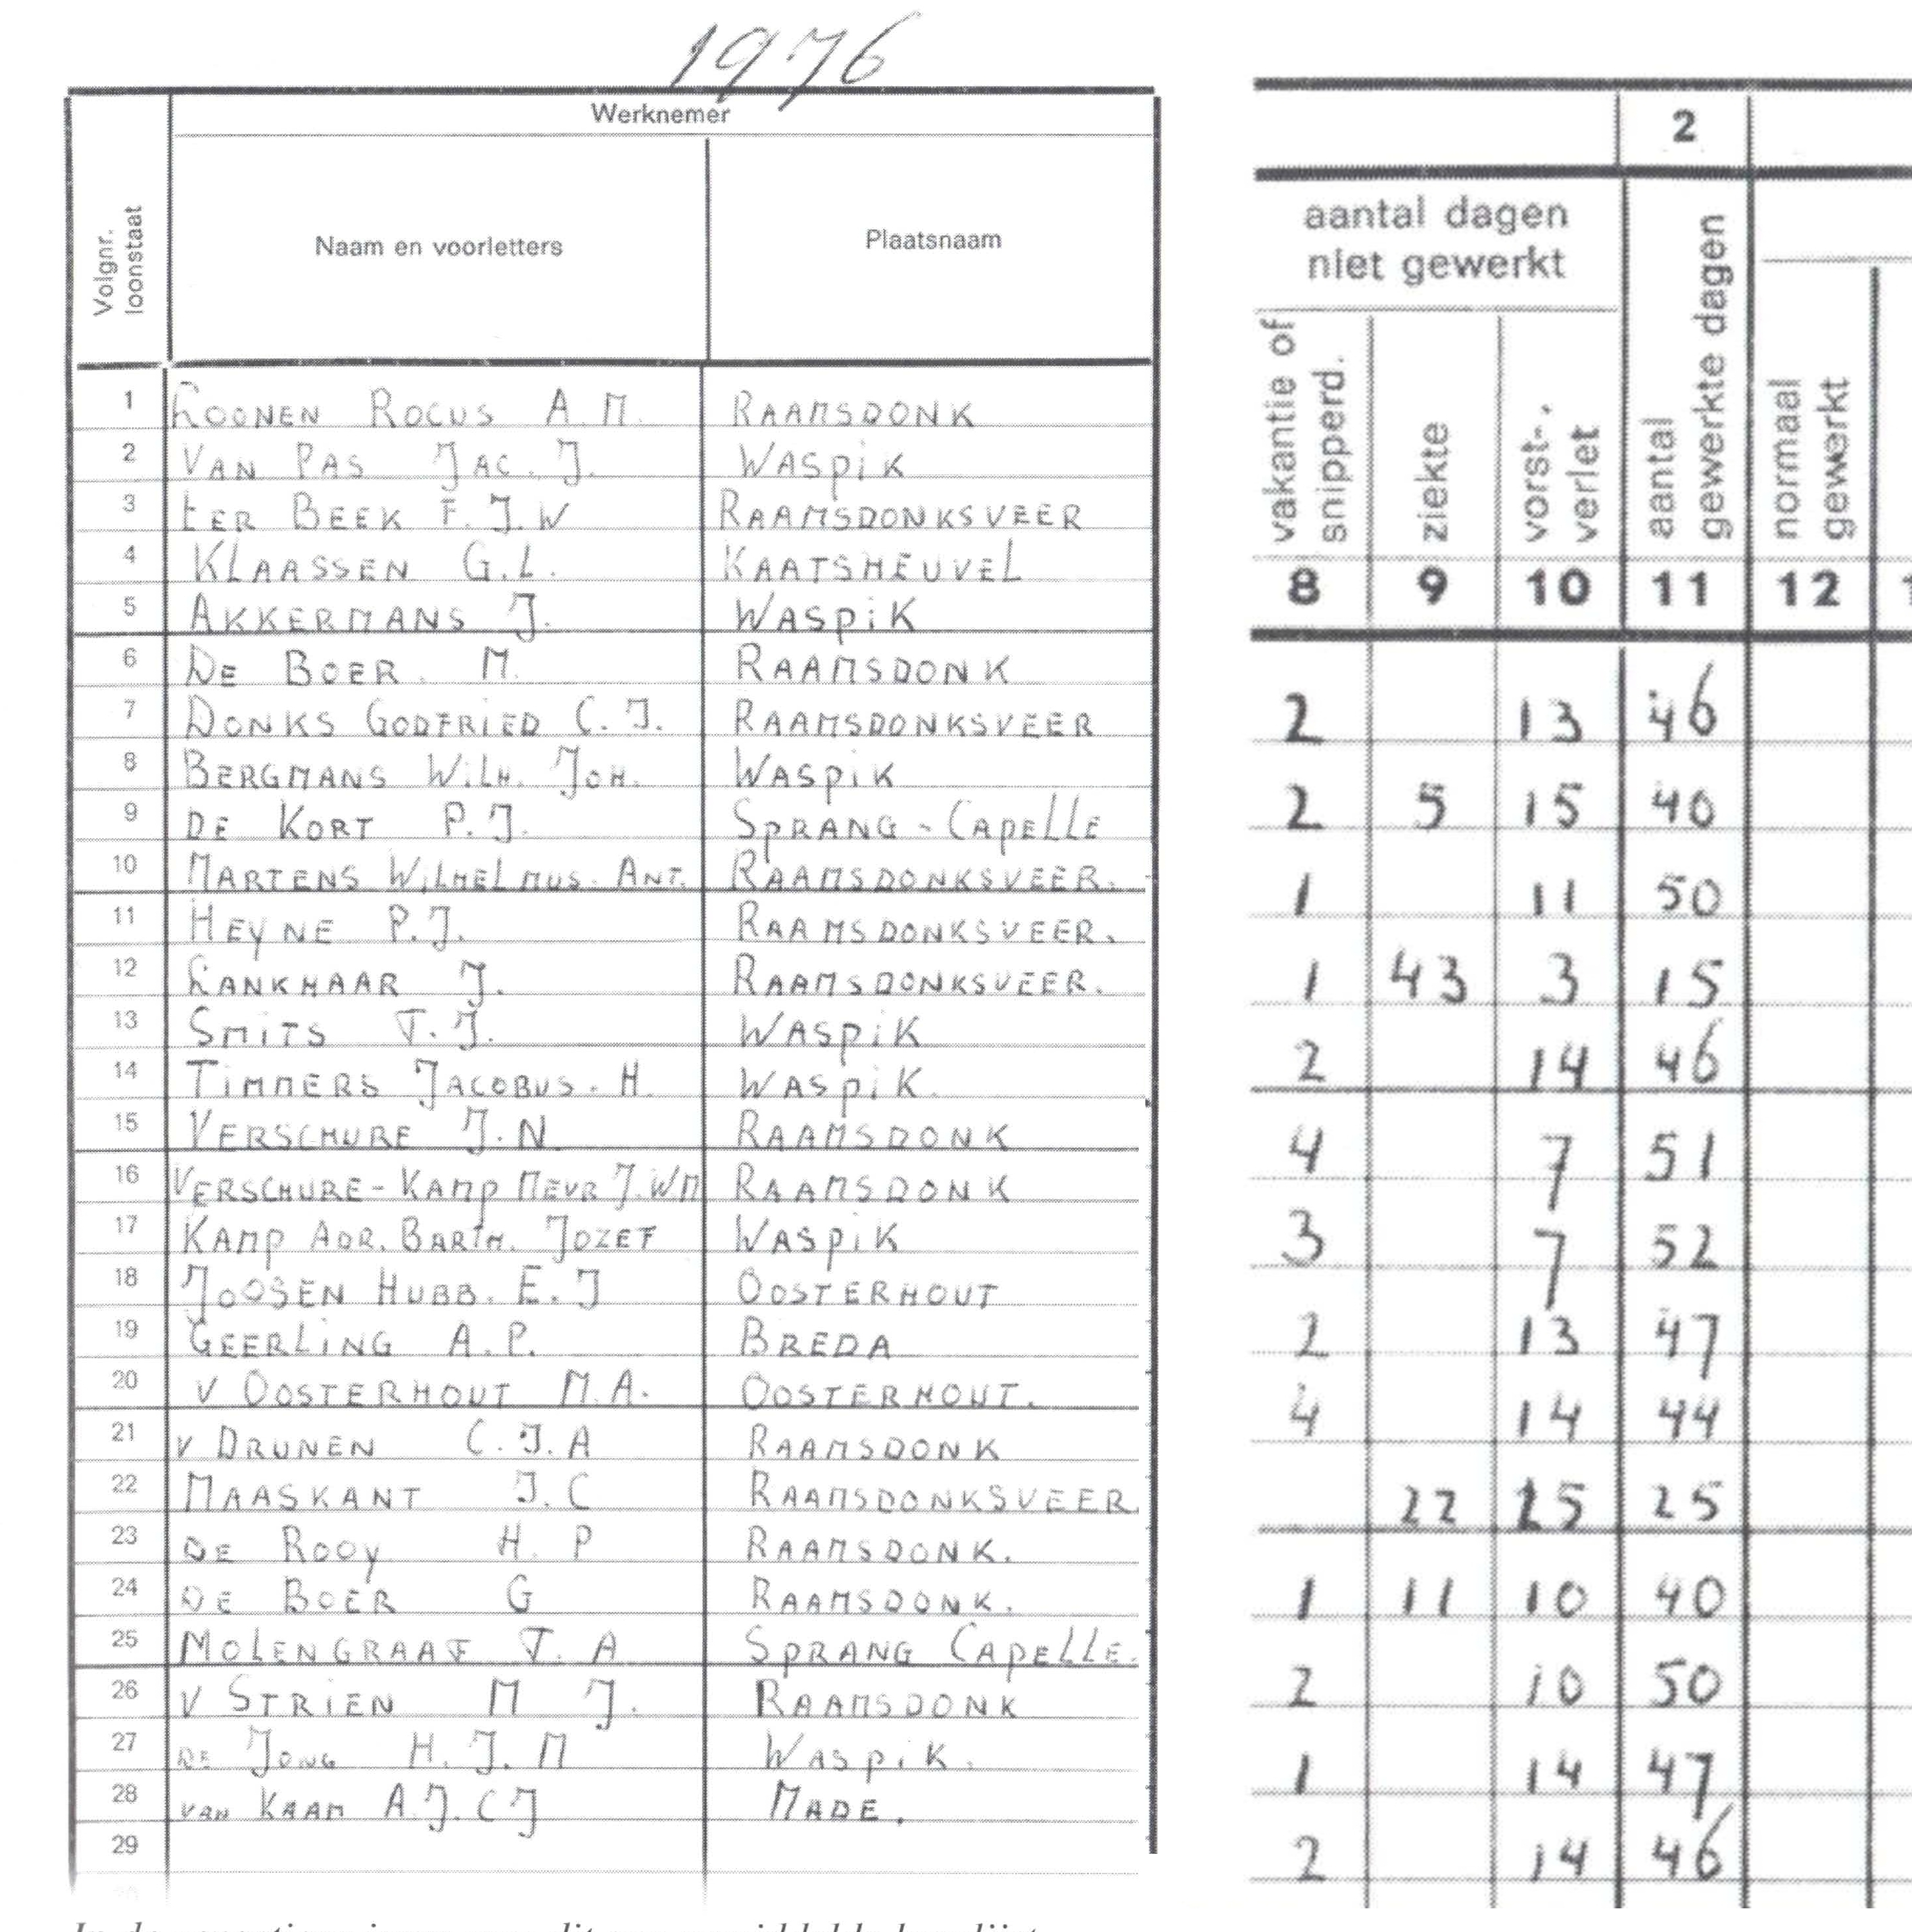 1976
Werknemer
Volgnr. loonstaat
Naam en voorletters
Plaatsnaam
1 LOONEN ROCUS A. M. RAAMSDONK
2 VAN PAS JAC. J. WASPIK
3 tER BEEK F. J. W RAAMSDONKSVEER
4 KLAASSEN G.L. KAATSHEUVEL
5 AKKERMANS J. WASPIK
6 DE BOER. M. RAAMSDONK
7 DONKS GODFRIED C. J. RAAMSDONKSVEER
8 BERGMANS WILH. JOH. WASPIK
9 DE KORT P. J. SPRANG - CAPELLE
10 MARTENS WILHELMUS. ANT. RAAMSDONKSVEER.
11 HEYNE P. J. RAAMSDONKSVEER.
12 LANKHAAR J. RAAMSDONKSVEER.
13 SMITS T. J. WASPIK
14 TIMMERS JACOBUS. H. WASPIK.
15 VERSCHURE J. N. RAAMSDONK
16 VERSCHURE - KAMP MEVR J. WM RAAMSDONK
17 KAMP ADR. BARTH. JOZEF WASPIK
18 JOOSEN HUBB. E. J OOSTERHOUT
19 GEERLING A. P. BREDA
20 v OOSTERHOUT M. A. OOSTERHOUT.
21 v DRUNEN C. J. A RAAMSDONK
22 MAASKANT J. C RAAMSDONKSVEER
23 DE ROOY H. P RAAMSDONK.
24 DE BOER G RAAMSDONK.
25 MOLENGRAAF T. A SPRANG CAPELLE.
26 v STRIEN M J. RAAMSDONK
27 DE JONG H. J. M WASPIK.
28 VAN KAAM A. J. C J MADE.
29
2
aantal dagen
niet gewerkt
vakantie of snipperd.
ziekte
vorst-, verlet
aantal gewerkte dagen
normaal gewerkt
8 9 10 11 12
2 13 46
2 5 15 40
1 11 50
1 43 3 15
2 14 46
4 7 51
3 7 52
2 13 47
4 14 44
22 15 25
1 11 10 40
2 10 50
1 14 47
2 14 46